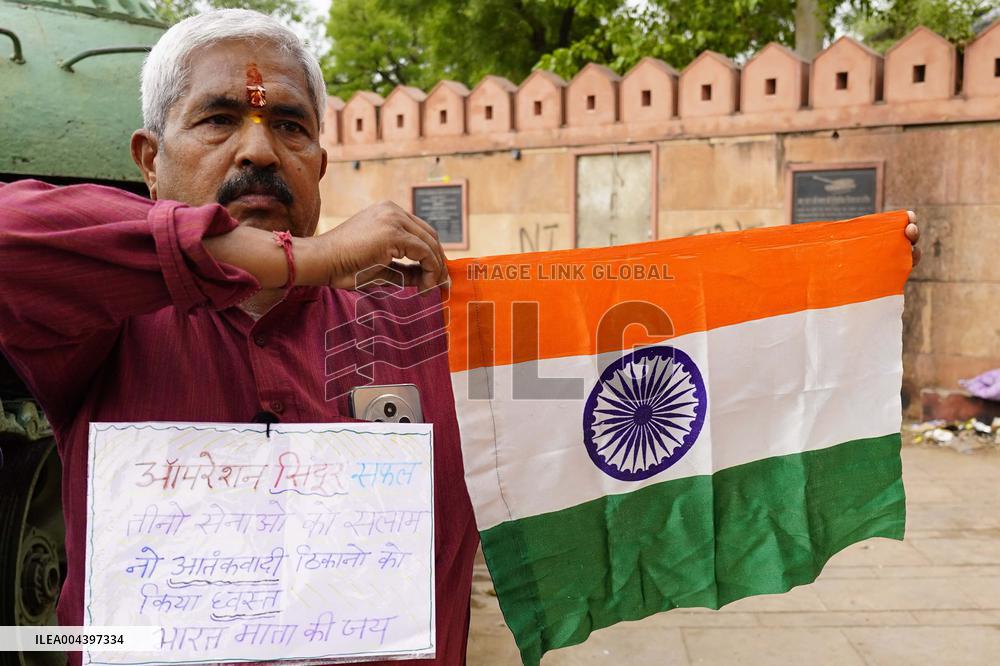 IMAGE LINK GLOBAL
ILG
NT
ऑपरेशन सिंदूर सफल
तीनो सेनाओ को सलाम
नो आतंकवादी ठिकानो को
किया ध्वस्त
भारत माता की जय
ILEA004397334